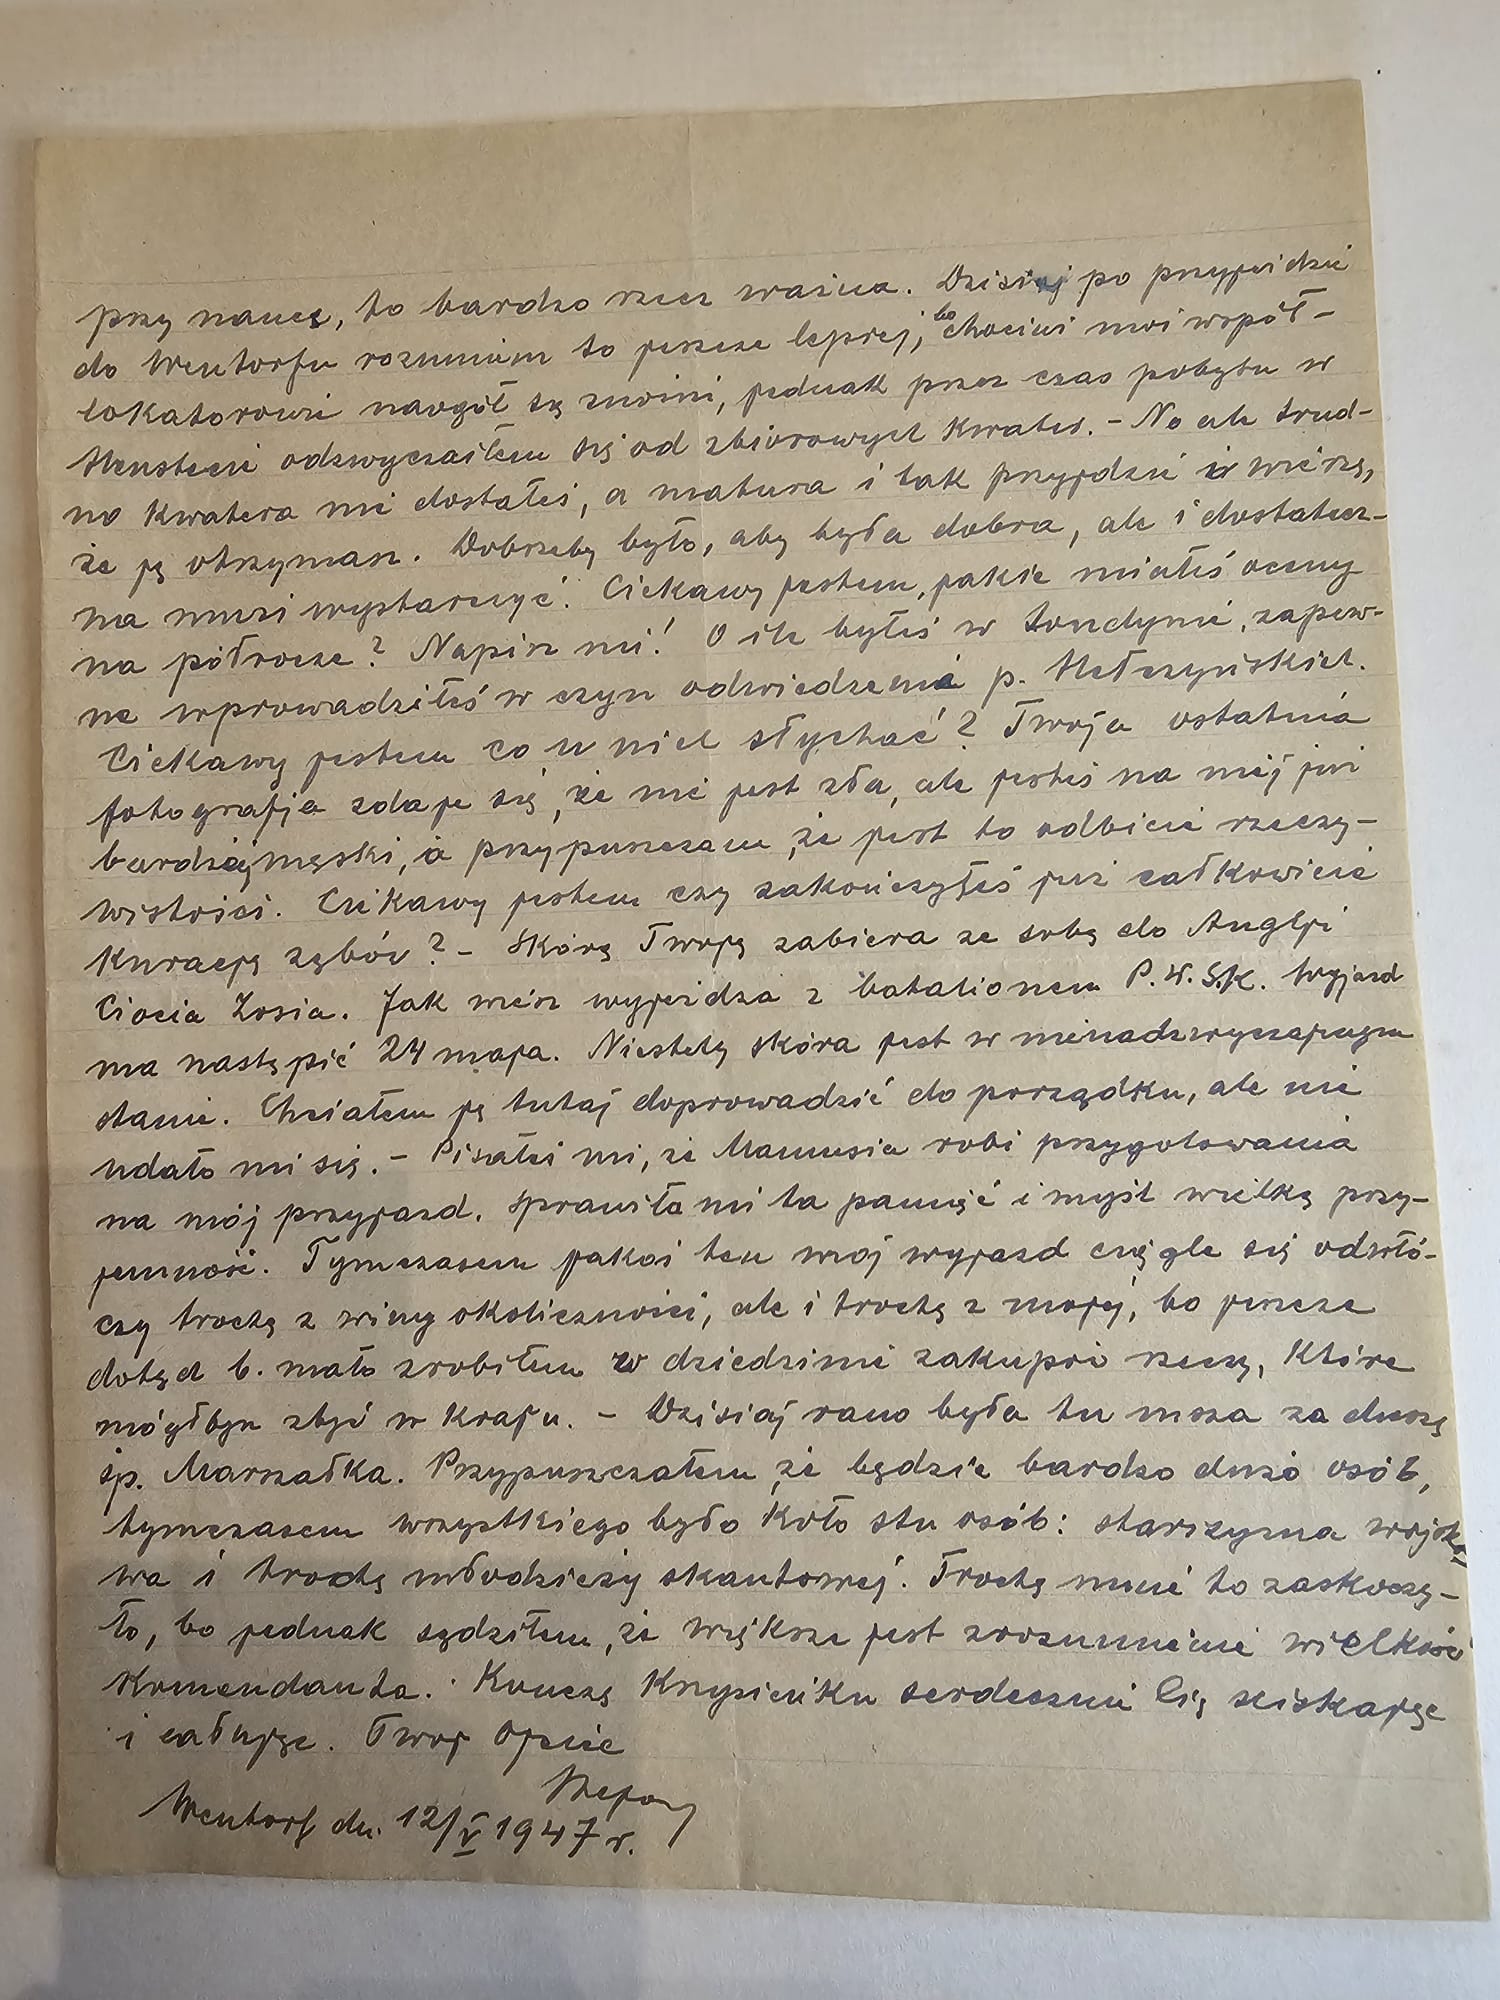 przy nauce, to bardzo rzecz ważna. Dzisiaj po przyjeździe
do Wentorfu rozumiem to jeszcze lepiej, bo chociaż moi współ-
lokatorowie naogół są znośni, jednak przez czas pobytu w
odzwyczaiłem się od zbiorowych kwater. - No ale trud-
no kwatera nie dostałeś, a matura i tak przyjdzie i wierzę,
że ją otrzymasz. Dobrzeby było, aby była dobra, ale i dostatecz-
na musi wystarczyć. Ciekawy jestem, jakie miałeś oceny
na półrocze? Napisz mi! O ile byłeś w Londynie, zapew-
ne wprowadziłeś w czyn odwiedzenie p.
Ciekawy jestem co u nich słychać? Twoja ostatnia
fotografja zdaje się, że nie jest zła, ale jesteś na niej już
bardziej męski, a przypuszczam, że jest to odbicie rzeczy-
wistości. Ciekawy jestem czy zakończyłeś już całkowicie
kurację zębów? - Skórę Twoją zabiera ze sobą do Anglji
Ciocia Zosia. Jak wiesz wyjeżdża z batalionem P.W.S.K. Wyjazd
ma nastąpić 24 maja. Niestety skóra jest w nienadzwyczajnym
stanie. Chciałem ją tutaj doprowadzić do porządku, ale nie
udało mi się. - Pisałeś mi, że Mamusia robi przygotowania
na mój przyjazd. Sprawiła mi ta pamięć i myśl wielką przy-
jemność. Tymczasem jakoś ten mój wyjazd ciągle się odwłó-
czy trochę z winy okoliczności, ale i trochę z mojej, bo jeszcze
dotąd b. mało zrobiłem w dziedzinie zakupów rzeczy, które
mógłbym zbyć w kraju. - Dzisiaj rano była tu msza za duszę
śp. Marszałka. Przypuszczałem, że będzie bardzo dużo osób,
tymczasem wszystkiego było koło stu osób: starszyzna wojsko-
wa i trochę młodzieży skautowej. Trochę mnie to zaskoczy-
ło, bo jednak sądziłem, że większe jest zrozumienie wielkości
Komendanta. Kończę Krzysieńku serdecznie Cię ściskając
i całując. Twój Ojciec
Wentorf dn. 12/V 1947 r.